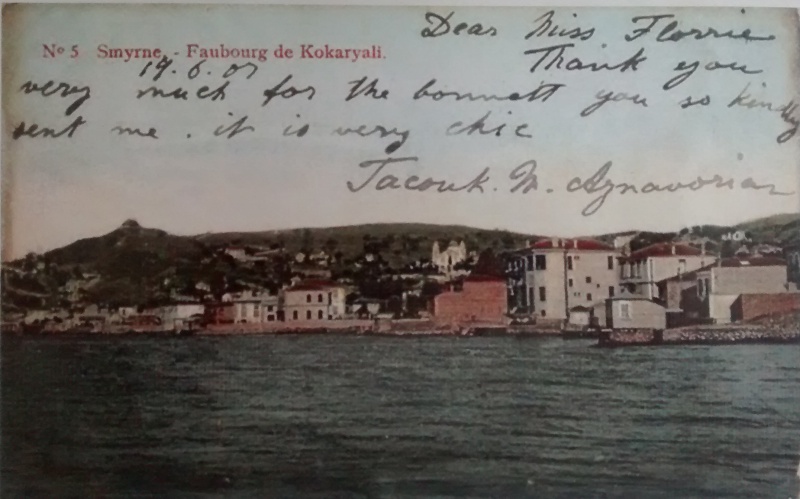 Dear Miss Florrie
Nº 5 Smyrne. - Faubourg de Kokaryali.
Thank you
19.6.07
very much for the bonnett you so kindly
sent me. it is very chic
Tacouk. M. Aznavorian